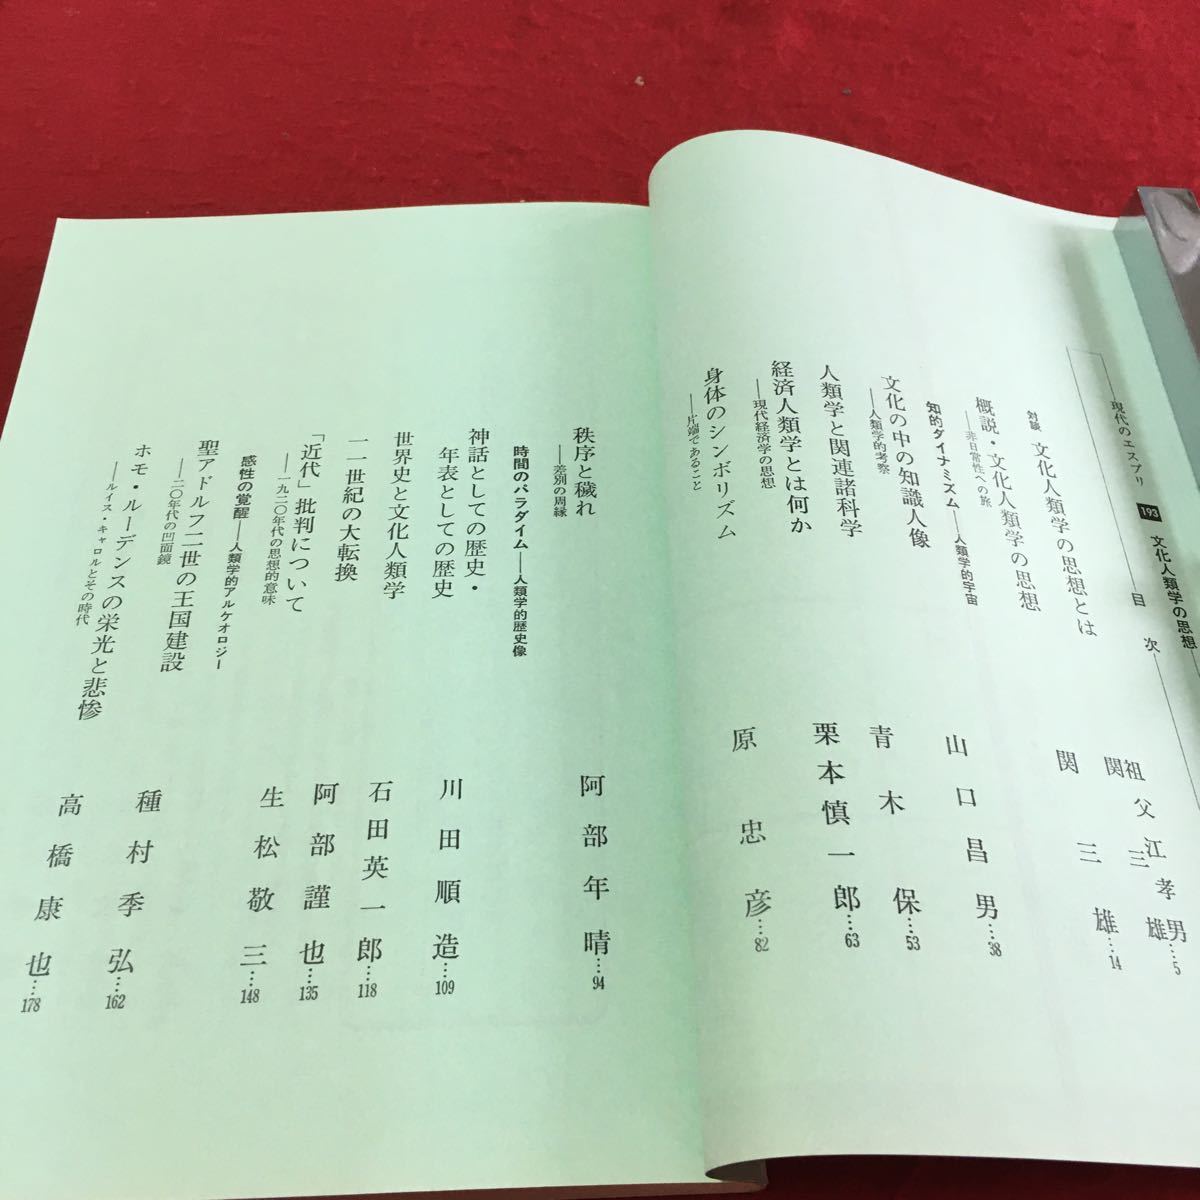 現代のエスプリ 193 文化人類学の思想
目次
対談 文化人類学の思想とは
祖父江孝男
関三雄…5
概説・文化人類学の思想
——非日常性への旅
関三雄…14
知的ダイナミズム——人類学的宇宙
文化の中の知識人像
——人類学的考察
山口昌男…38
人類学と関連諸科学
青木保…53
経済人類学とは何か
——現代経済学の思想
栗本慎一郎…63
身体のシンボリズム
——片端であること
原忠彦…82
秩序と穢れ
——差別の周縁
阿部年晴…94
時間のパラダイム——人類学的歴史像
神話としての歴史・
年表としての歴史
川田順造…109
世界史と文化人類学
石田英一郎…118
一一世紀の大転換
阿部謹也…135
「近代」批判について
——一九二〇年代の思想的意味
生松敬三…148
感性の覚醒——人類学的アルケオロジー
聖アドルフ二世の王国建設
——二〇年代の凹面鏡
種村季弘…162
ホモ・ルーデンスの栄光と悲惨
——ルイス・キャロルとその時代
高橋康也…178